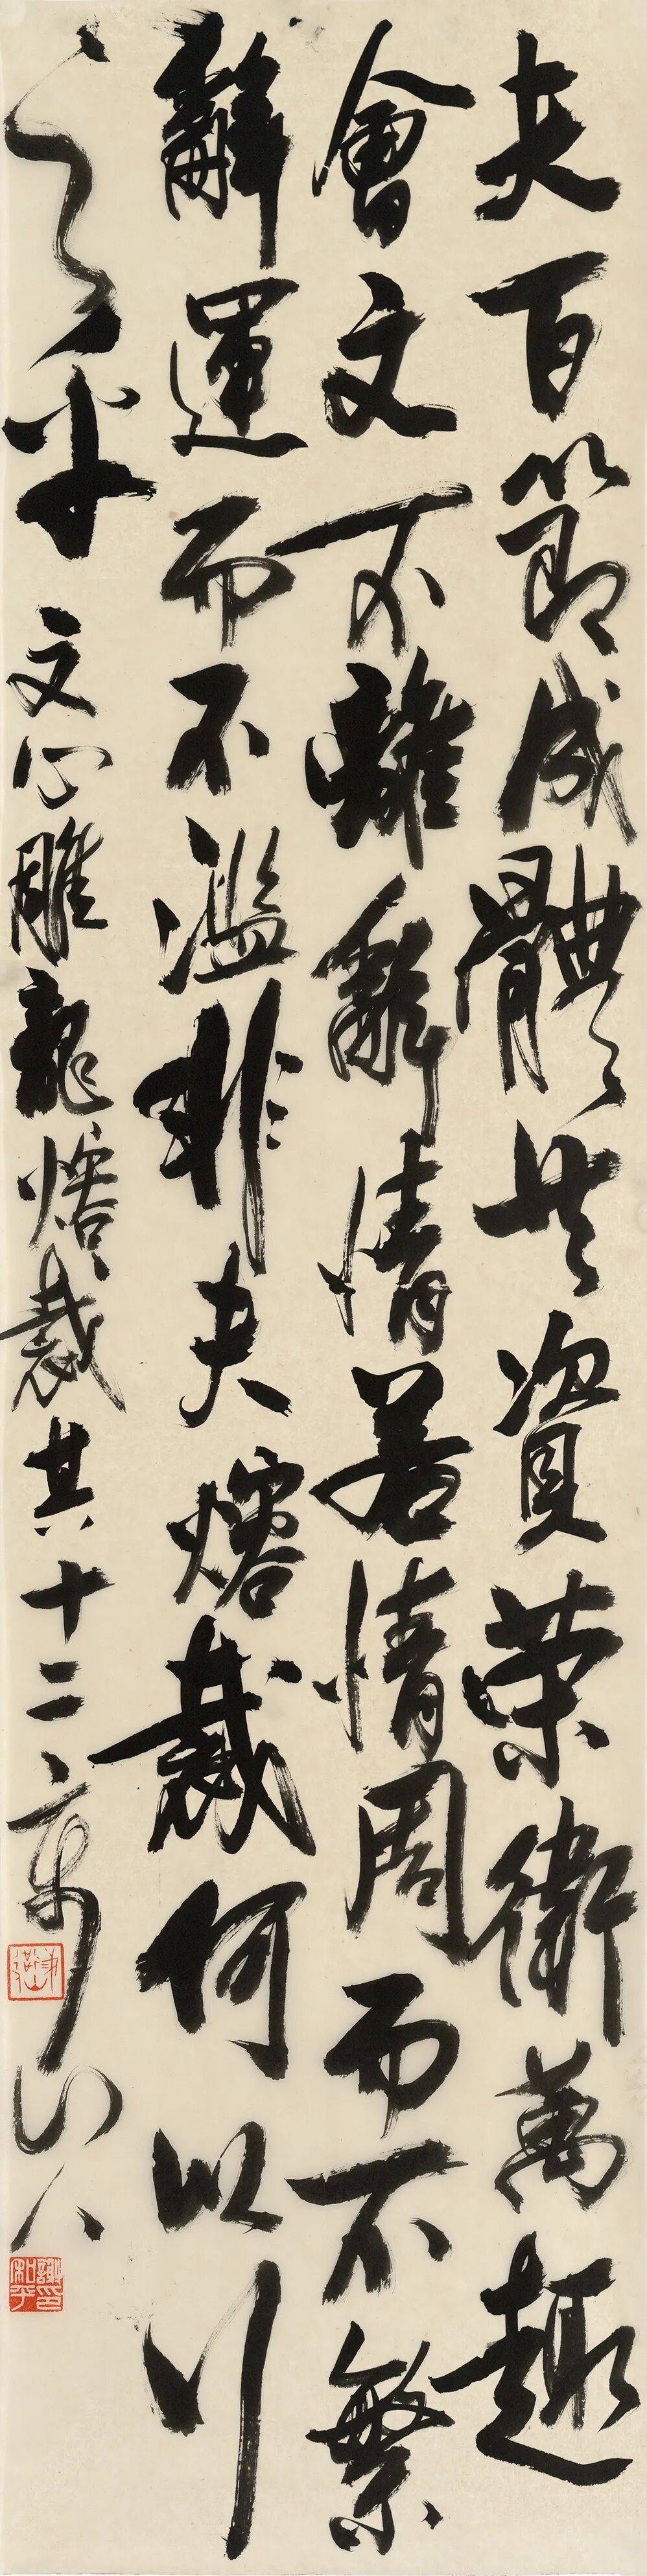 夫百節成體共資榮衛萬趣
會文不離辭情若情周而不繁
辭運而不濫非夫熔裁何以行
之乎 文心雕龍熔裁其十二
謝印和平